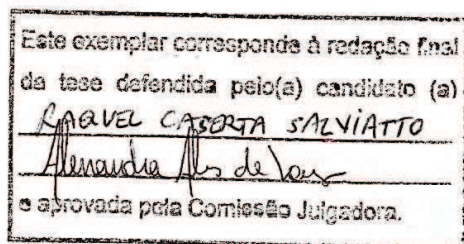 Este exemplar corresponde à redação final
da tese defendida pelo(a) candidato (a)
RAQUEL CASERTA SALVIATTO
Alexandra Alves de
e aprovada pela Comissão Julgadora.